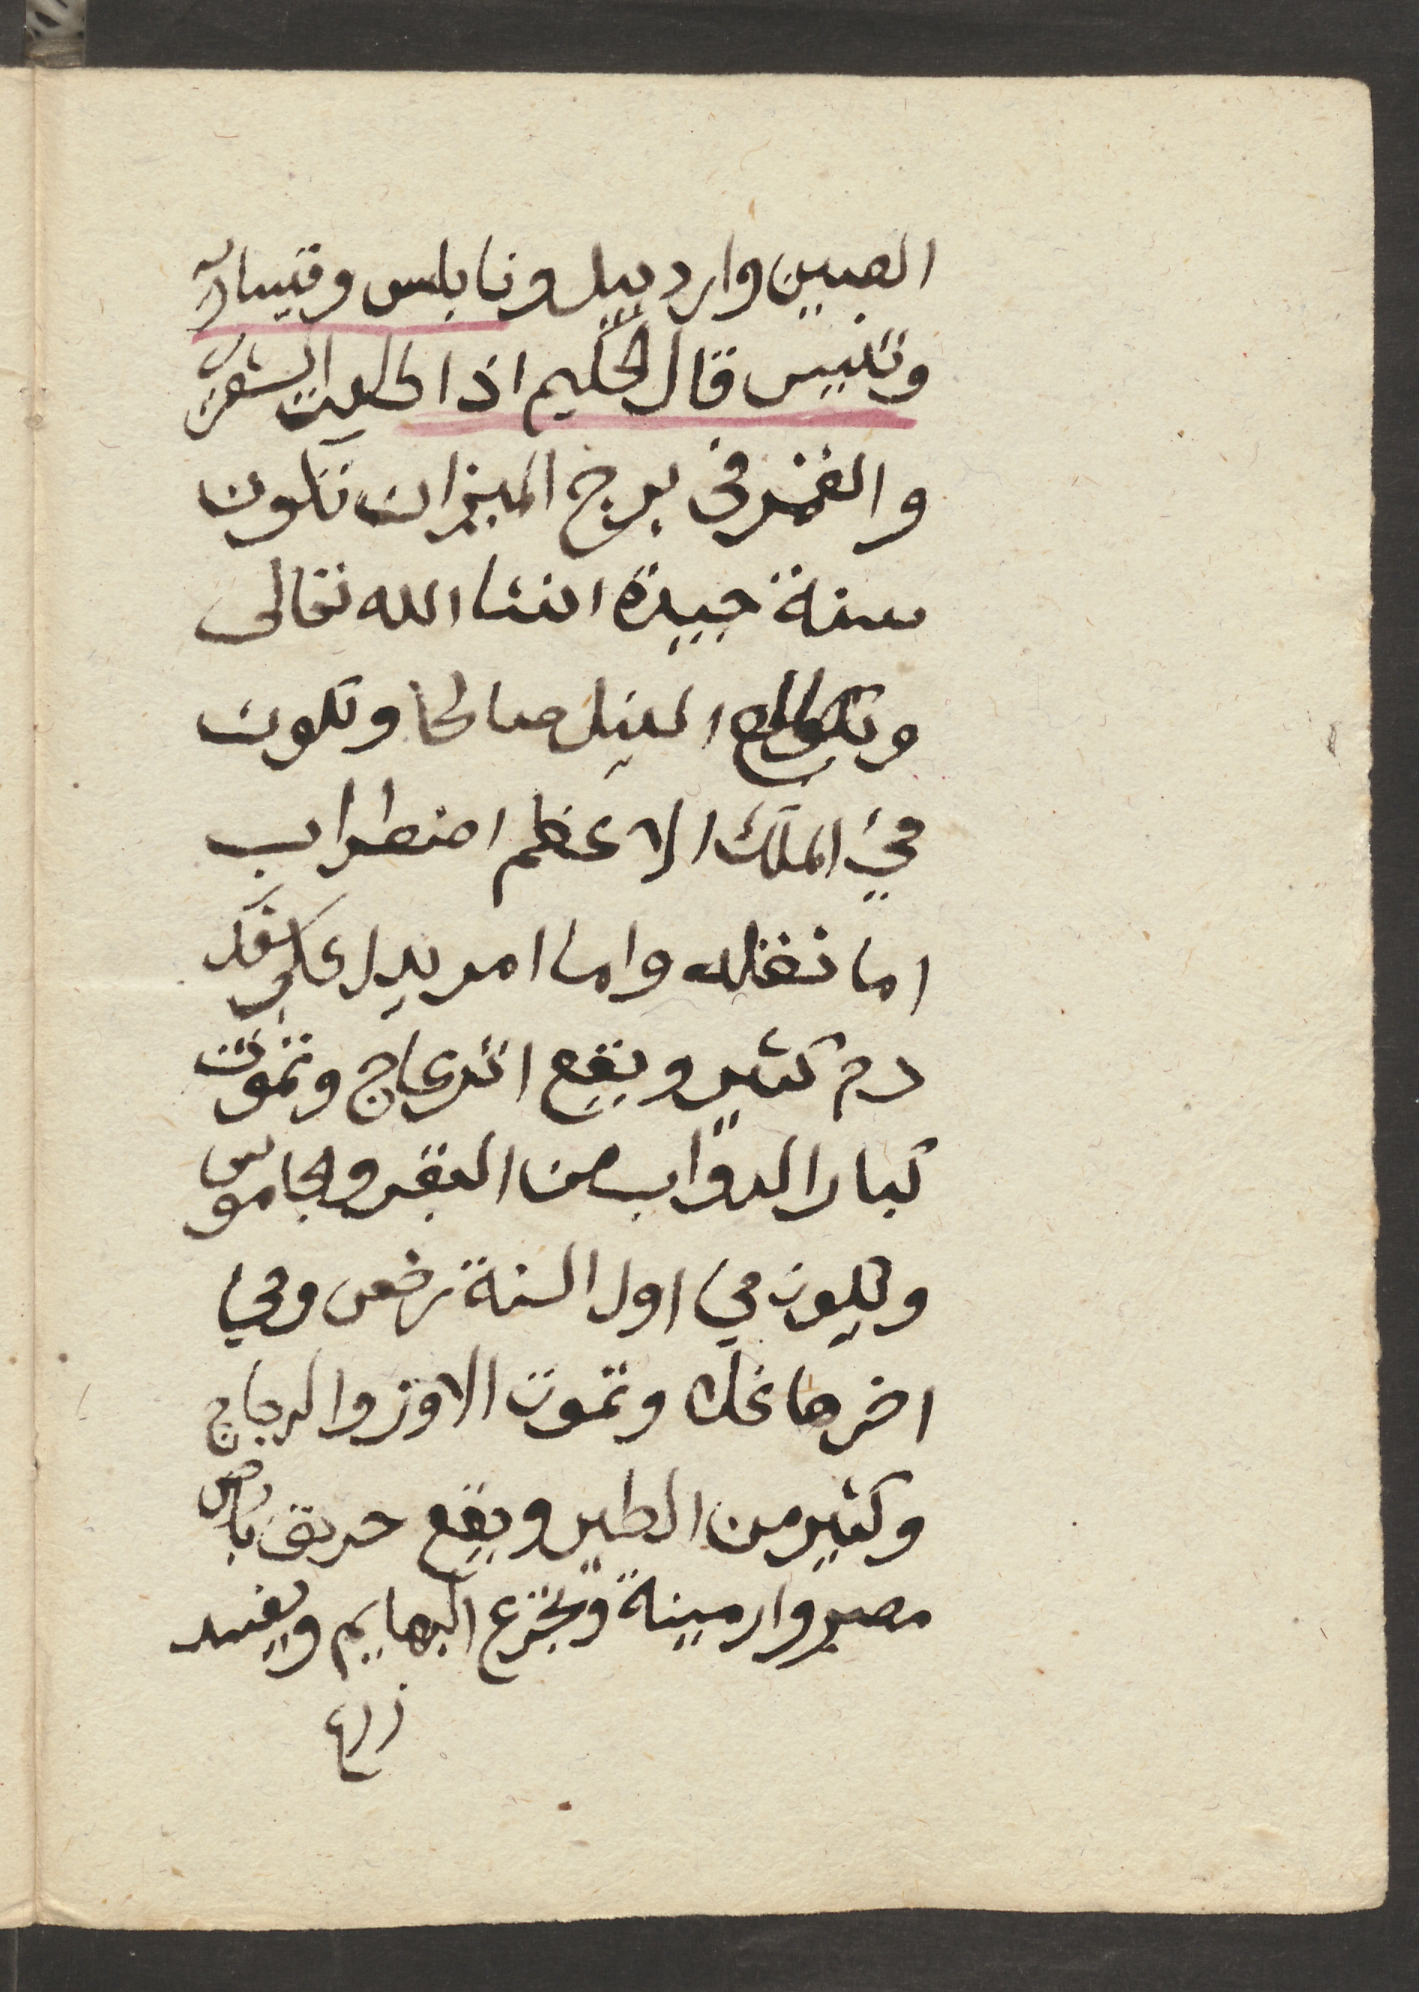 الصين واردبيل ونابلس وقيسارية
وتنيس قال الحكيم اذا طلعت الشعرى
والقمر في برج الميزان تكون
سنة جيدة انشا الله تعالى
ويطلع النيل صالحا وتكون
في الملك الاعظم اضطراب
اما نقله واما امر يدل على سفك
دم كثير ويقع انزعاج وتموت
كبار الدواب من البقر والجاموس
ويكون في اول السنة رخص وفي
اخرها غلا وتموت الاوز والدجاج
وكثير من الطير ويقع حريق بارض
مصر وارمينة وتجزع البهايم ويفسد
زرع